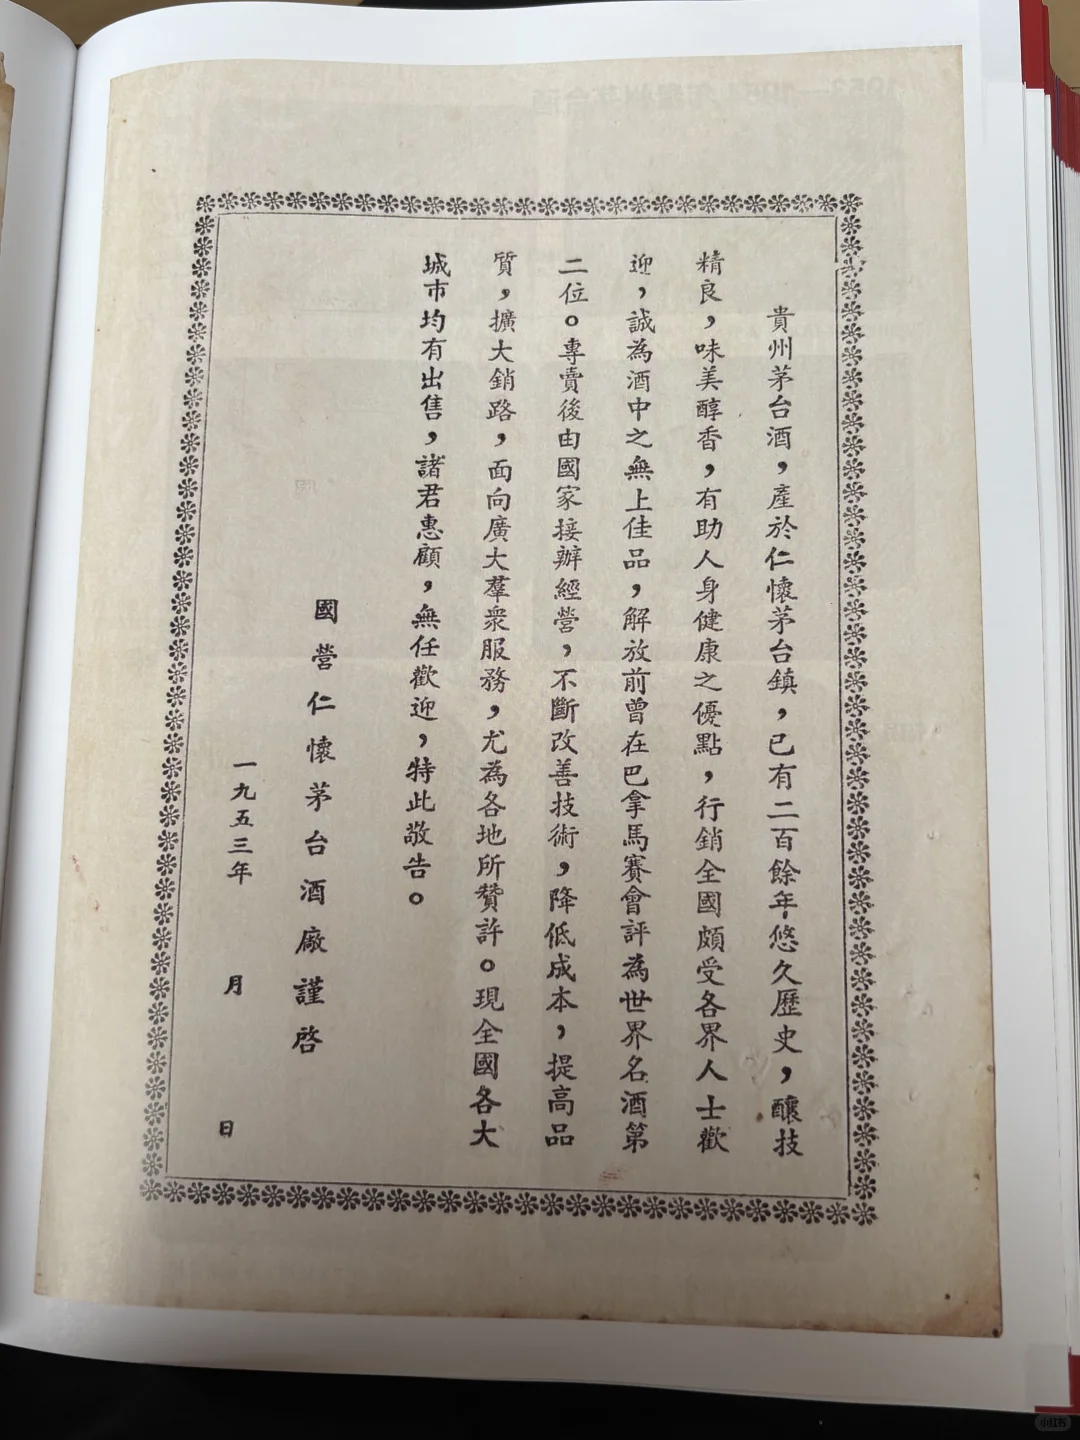 貴州茅台酒，產於仁懷茅台鎮，已有二百餘年悠久歷史，釀技
精良，味美醇香，有助人身健康之優點，行銷全國頗受各界人士歡
迎，誠為酒中之無上佳品，解放前曾在巴拿馬賽會評為世界名酒第
二位。專賣後由國家接辦經營，不斷改善技術，降低成本，提高品
質，擴大銷路，面向廣大羣衆服務，尤為各地所贊許。現全國各大
城市均有出售，諸君惠顧，無任歡迎，特此敬告。
國營仁懷茅台酒廠謹啓
一九五三年 月 日
小红书